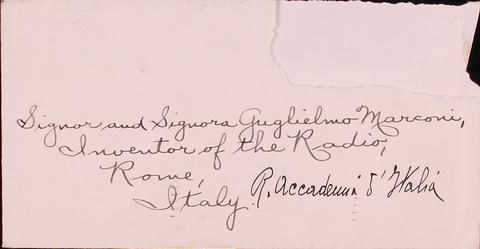 Signor and Signora Guglielmo Marconi,
Inventor of the Radio,
Rome,
Italy R. Accademia d'Italia